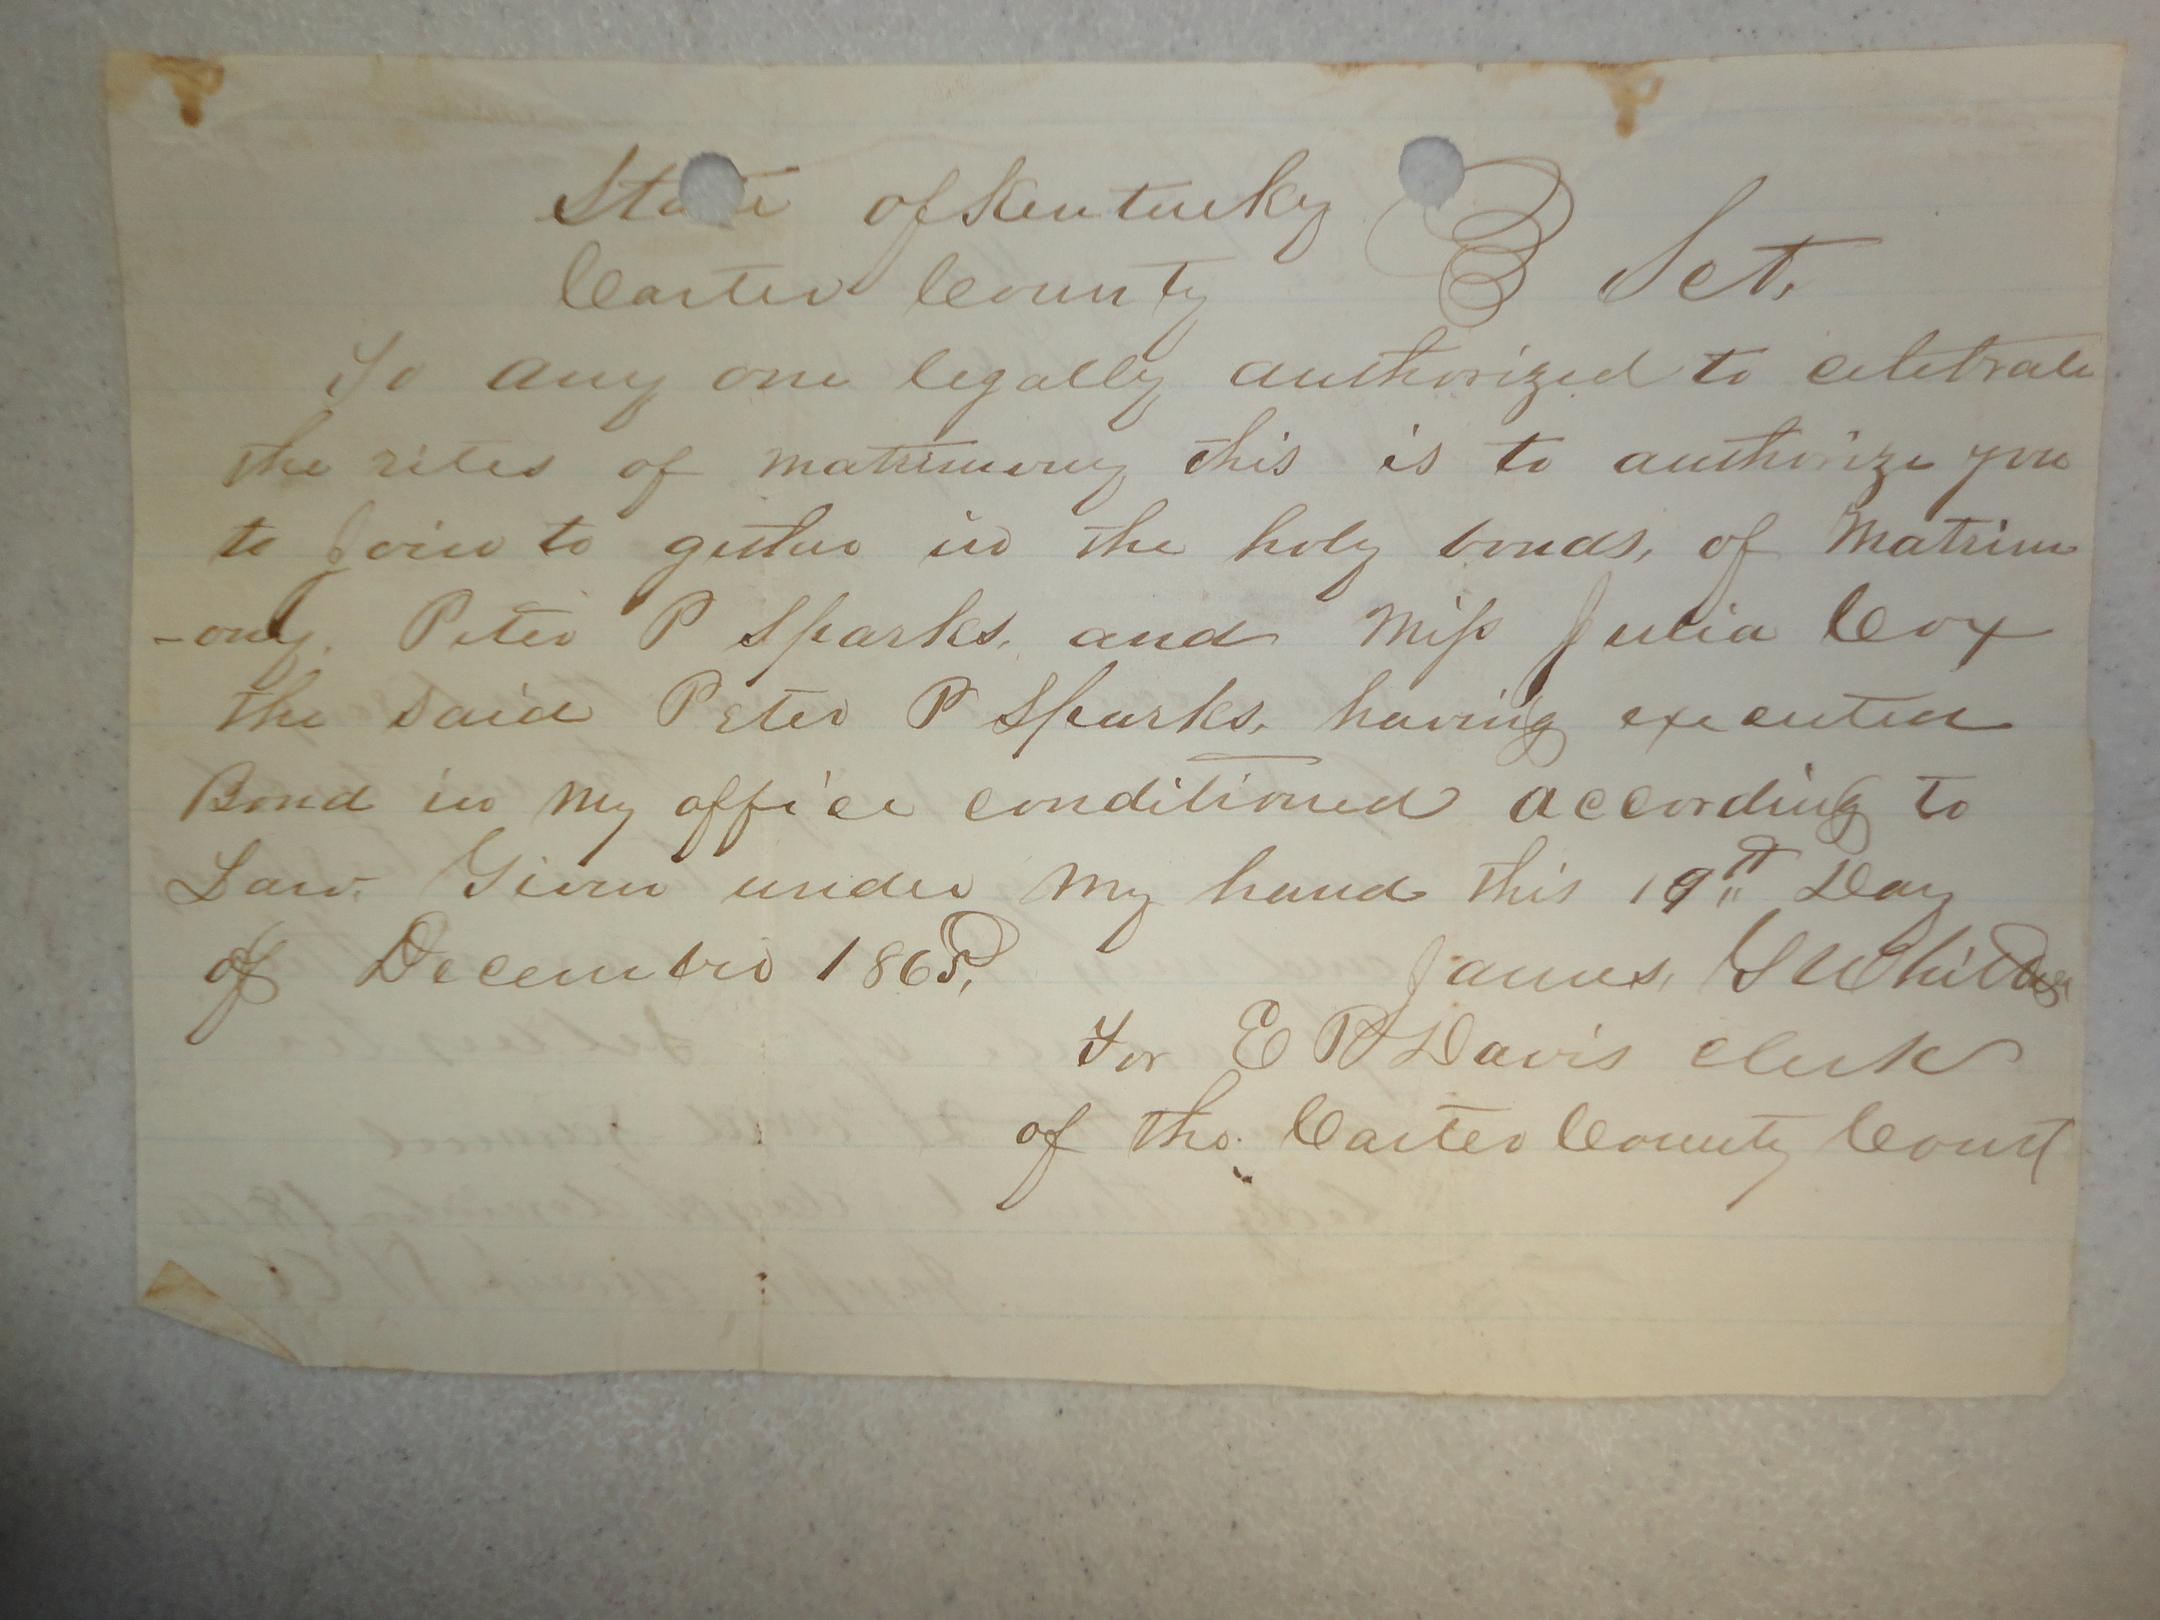 State of Kentucky
Carter County } Sct,
To any one legally authorized to celebrate
the rites of matrimony this is to authorize you
to Join to gether in the holy bonds, of Matrim
-ony. Peter P Sparks, and Miss Julia Cox
the said Peter P Sparks, having executed
Bond in my office conditioned according to
Law. Given under my hand this 19th Day
of December 1865,
James, G
For E P Davis Clerk
of the Carter County Court